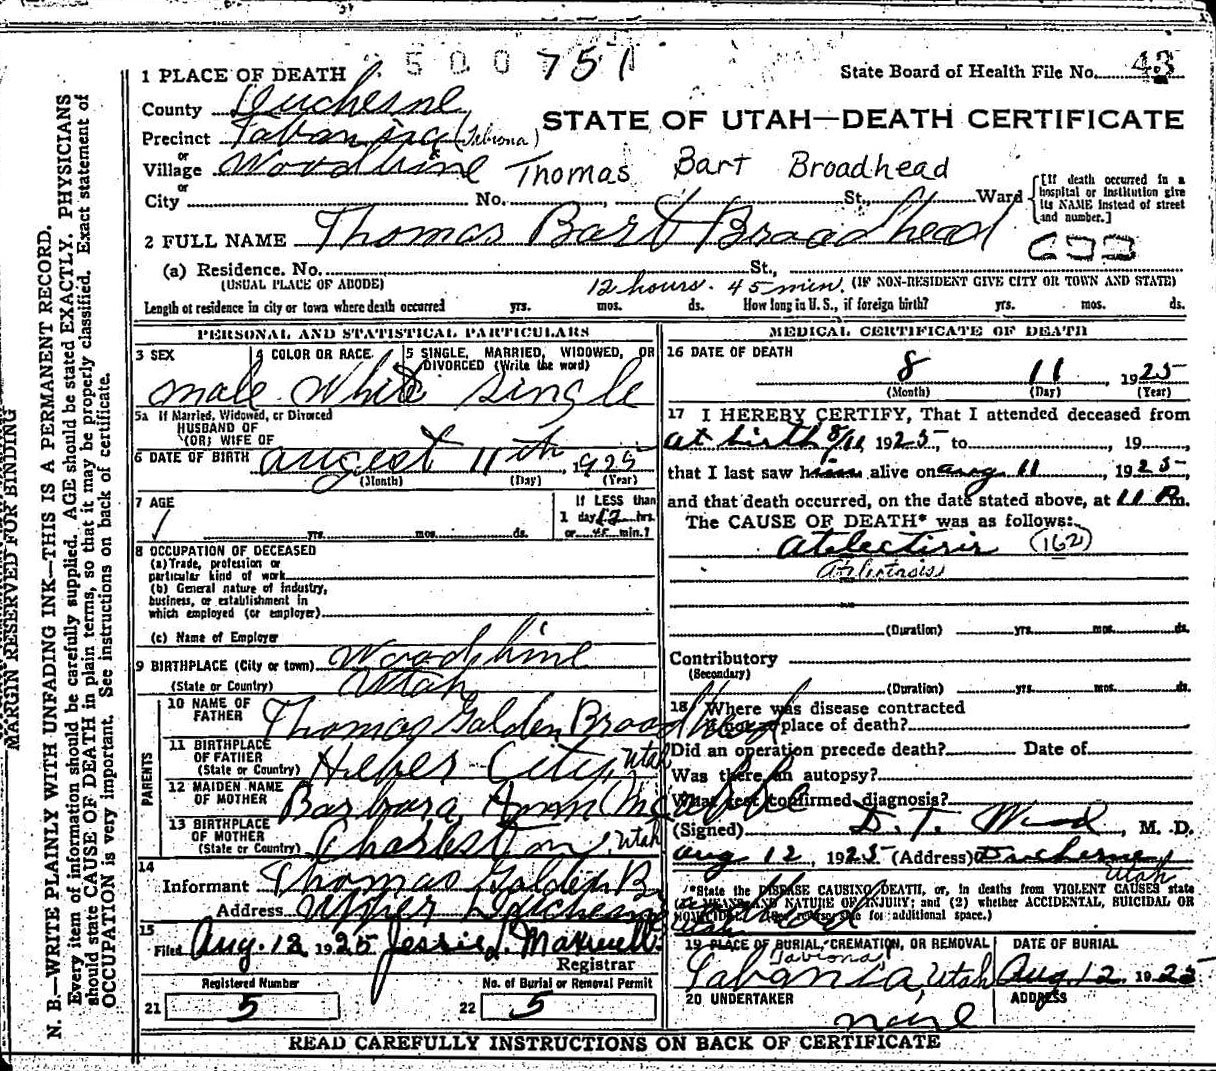 500751
1 PLACE OF DEATH
State Board of Health File No. 43
County Duchesne
STATE OF UTAH—DEATH CERTIFICATE
Precinct Tabiona (Tabiona)
Village Woodbine Thomas Bart Broadhead
or
City No. St., Ward
[If death occurred in a hospital or institution give its NAME instead of street and number.]
2 FULL NAME Thomas Bart Broadhead
(a) Residence. No. St.,
(USUAL PLACE OF ABODE) (IF NON-RESIDENT GIVE CITY OR TOWN AND STATE)
12 hours. 45 min.
Length of residence in city or town where death occurred yrs. mos. ds. How long in U. S., if foreign birth? yrs. mos. ds.
PERSONAL AND STATISTICAL PARTICULARS
3 SEX 4 COLOR OR RACE 5 SINGLE, MARRIED, WIDOWED, OR DIVORCED (Write the word)
male White single
5a If Married, Widowed, or Divorced
HUSBAND OF
(OR) WIFE OF
6 DATE OF BIRTH august 11th, 1925
(Month) (Day) (Year)
7 AGE
If LESS than
1 day 12 hrs.
yrs. mos. ds. or 45 min.?
8 OCCUPATION OF DECEASED
(a) Trade, profession or
particular kind of work
(b) General nature of industry,
business, or establishment in
which employed (or employer)
(c) Name of Employer
9 BIRTHPLACE (City or town) Woodbine
(State or Country) Utah
PARENTS
10 NAME OF FATHER Thomas Golden Broadhead
11 BIRTHPLACE OF FATHER (State or Country) Heber City, Utah
12 MAIDEN NAME OF MOTHER Barbara Ann McAffee
13 BIRTHPLACE OF MOTHER (State or Country) Charleston, Utah
14
Informant Thomas Golden Broadhead
Address Upper Duchesne
Utah
15
Filed Aug. 12 1925 Jessie L. Maxwell
Registrar
Registered Number No. of Burial or Removal Permit
21 5 22 5
MEDICAL CERTIFICATE OF DEATH
16 DATE OF DEATH
8 11, 1925
(Month) (Day) (Year)
17 I HEREBY CERTIFY, That I attended deceased from
at birth 8/11 1925 to, 19,
that I last saw him alive on aug 11, 1925
and that death occurred, on the date stated above, at 11 P m.
The CAUSE OF DEATH* was as follows:
Atelectisis (162)
Atelectasis
(Duration) yrs. mos. ds.
Contributory
(Secondary)
(Duration) yrs. mos. ds.
18 Where was disease contracted
if not at place of death?
Did an operation precede death? Date of
Was there an autopsy?
What test confirmed diagnosis?
(Signed) D. T. Wood, M. D.
aug 12, 1925 (Address) Duchesne,
Utah
*State the DISEASE CAUSING DEATH, or, in deaths from VIOLENT CAUSES state
(1) MEANS AND NATURE OF INJURY; and (2) whether ACCIDENTAL, SUICIDAL OR
HOMICIDAL. (See reverse side for additional space.)
19 PLACE OF BURIAL, CREMATION, OR REMOVAL DATE OF BURIAL
Tabiona
Tabania, Utah Aug. 12. 1925
20 UNDERTAKER ADDRESS
none
READ CAREFULLY INSTRUCTIONS ON BACK OF CERTIFICATE
MARGIN RESERVED FOR BINDING
N. B.—WRITE PLAINLY WITH UNFADING INK—THIS IS A PERMANENT RECORD.
Every item of information should be carefully supplied. AGE should be stated EXACTLY. PHYSICIANS
should state CAUSE OF DEATH in plain terms, so that it may be properly classified. Exact statement of
OCCUPATION is very important. See instructions on back of certificate.